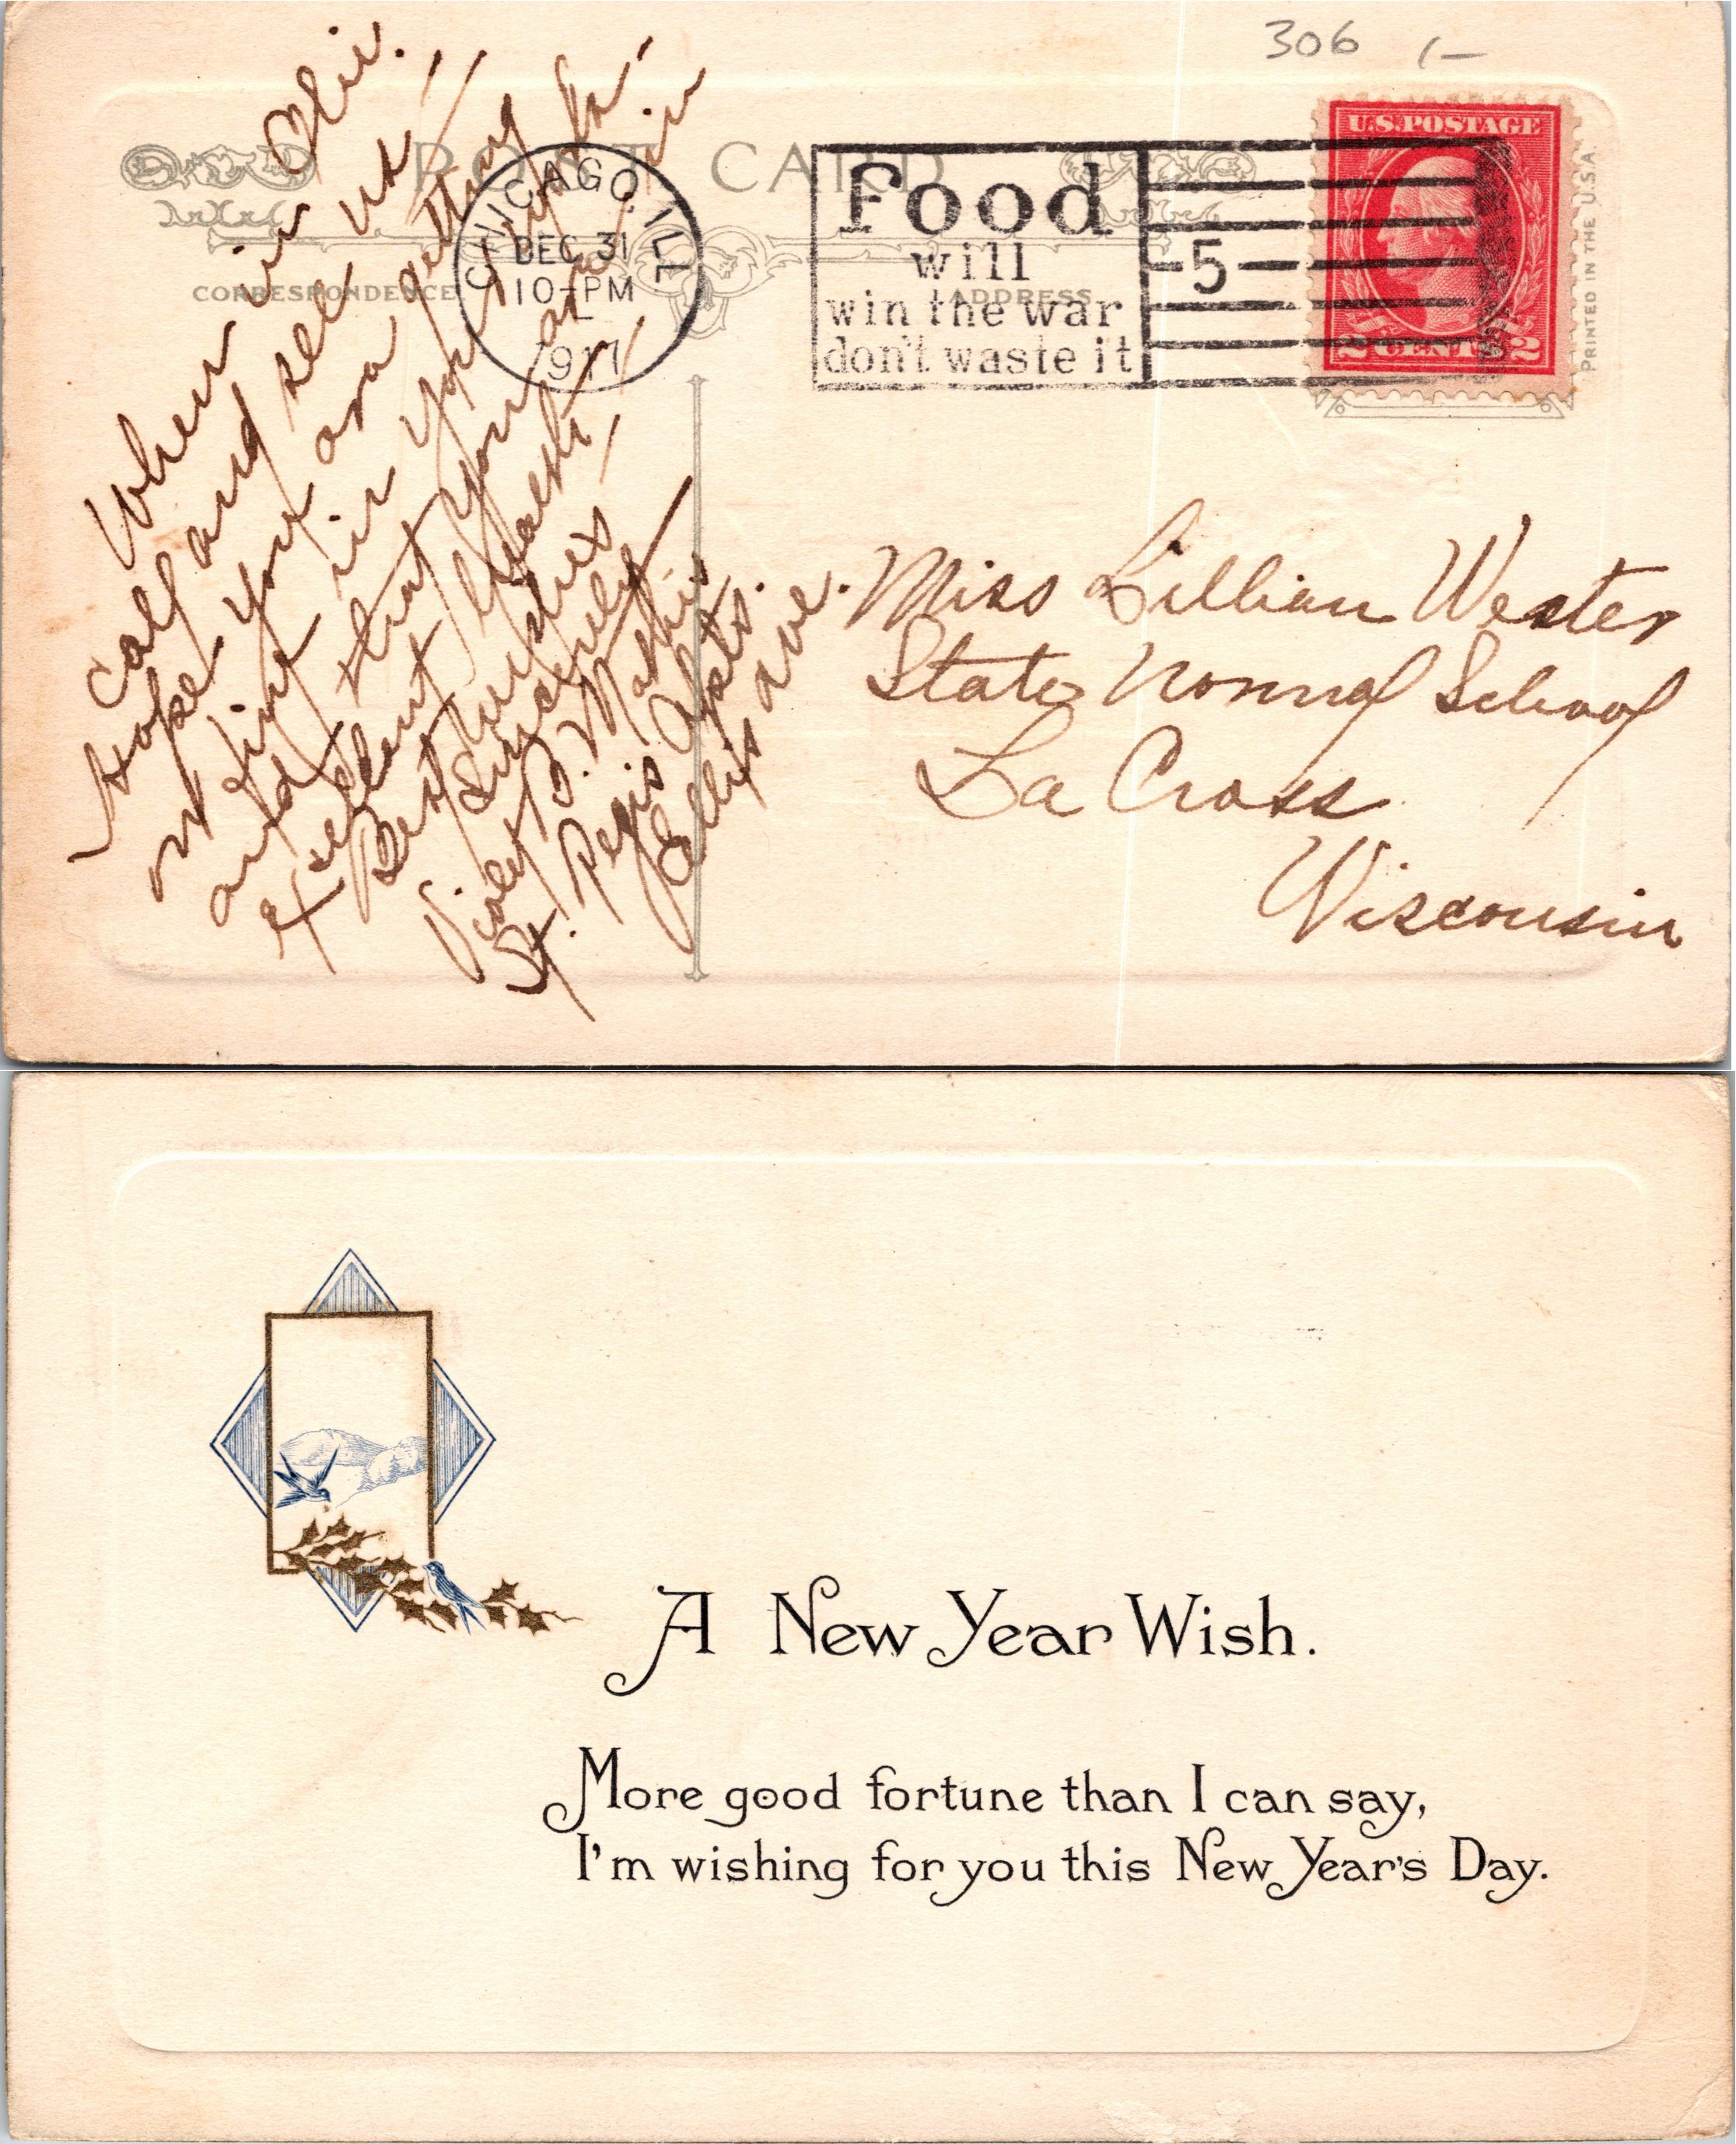 306 1-
POST CARD
CORRESPONDENCE
ADDRESS
CHICAGO, ILL
DEC 31
10-PM
1917
Food
will
win the war
don't waste it
5
U.S. POSTAGE
2 CENTS 2
PRINTED IN THE U.S.A.
When in Chi.
call and see us
Hope you are getting
along in your work
and that you are in
Excellent health
Best wishes
Sincerely
Violet
St. Regis Apts.
Ellis ave.
Miss Lillian Wester
State Normal School
La Cross
Wisconsin
A New Year Wish.
More good fortune than I can say,
I'm wishing for you this New Year's Day.